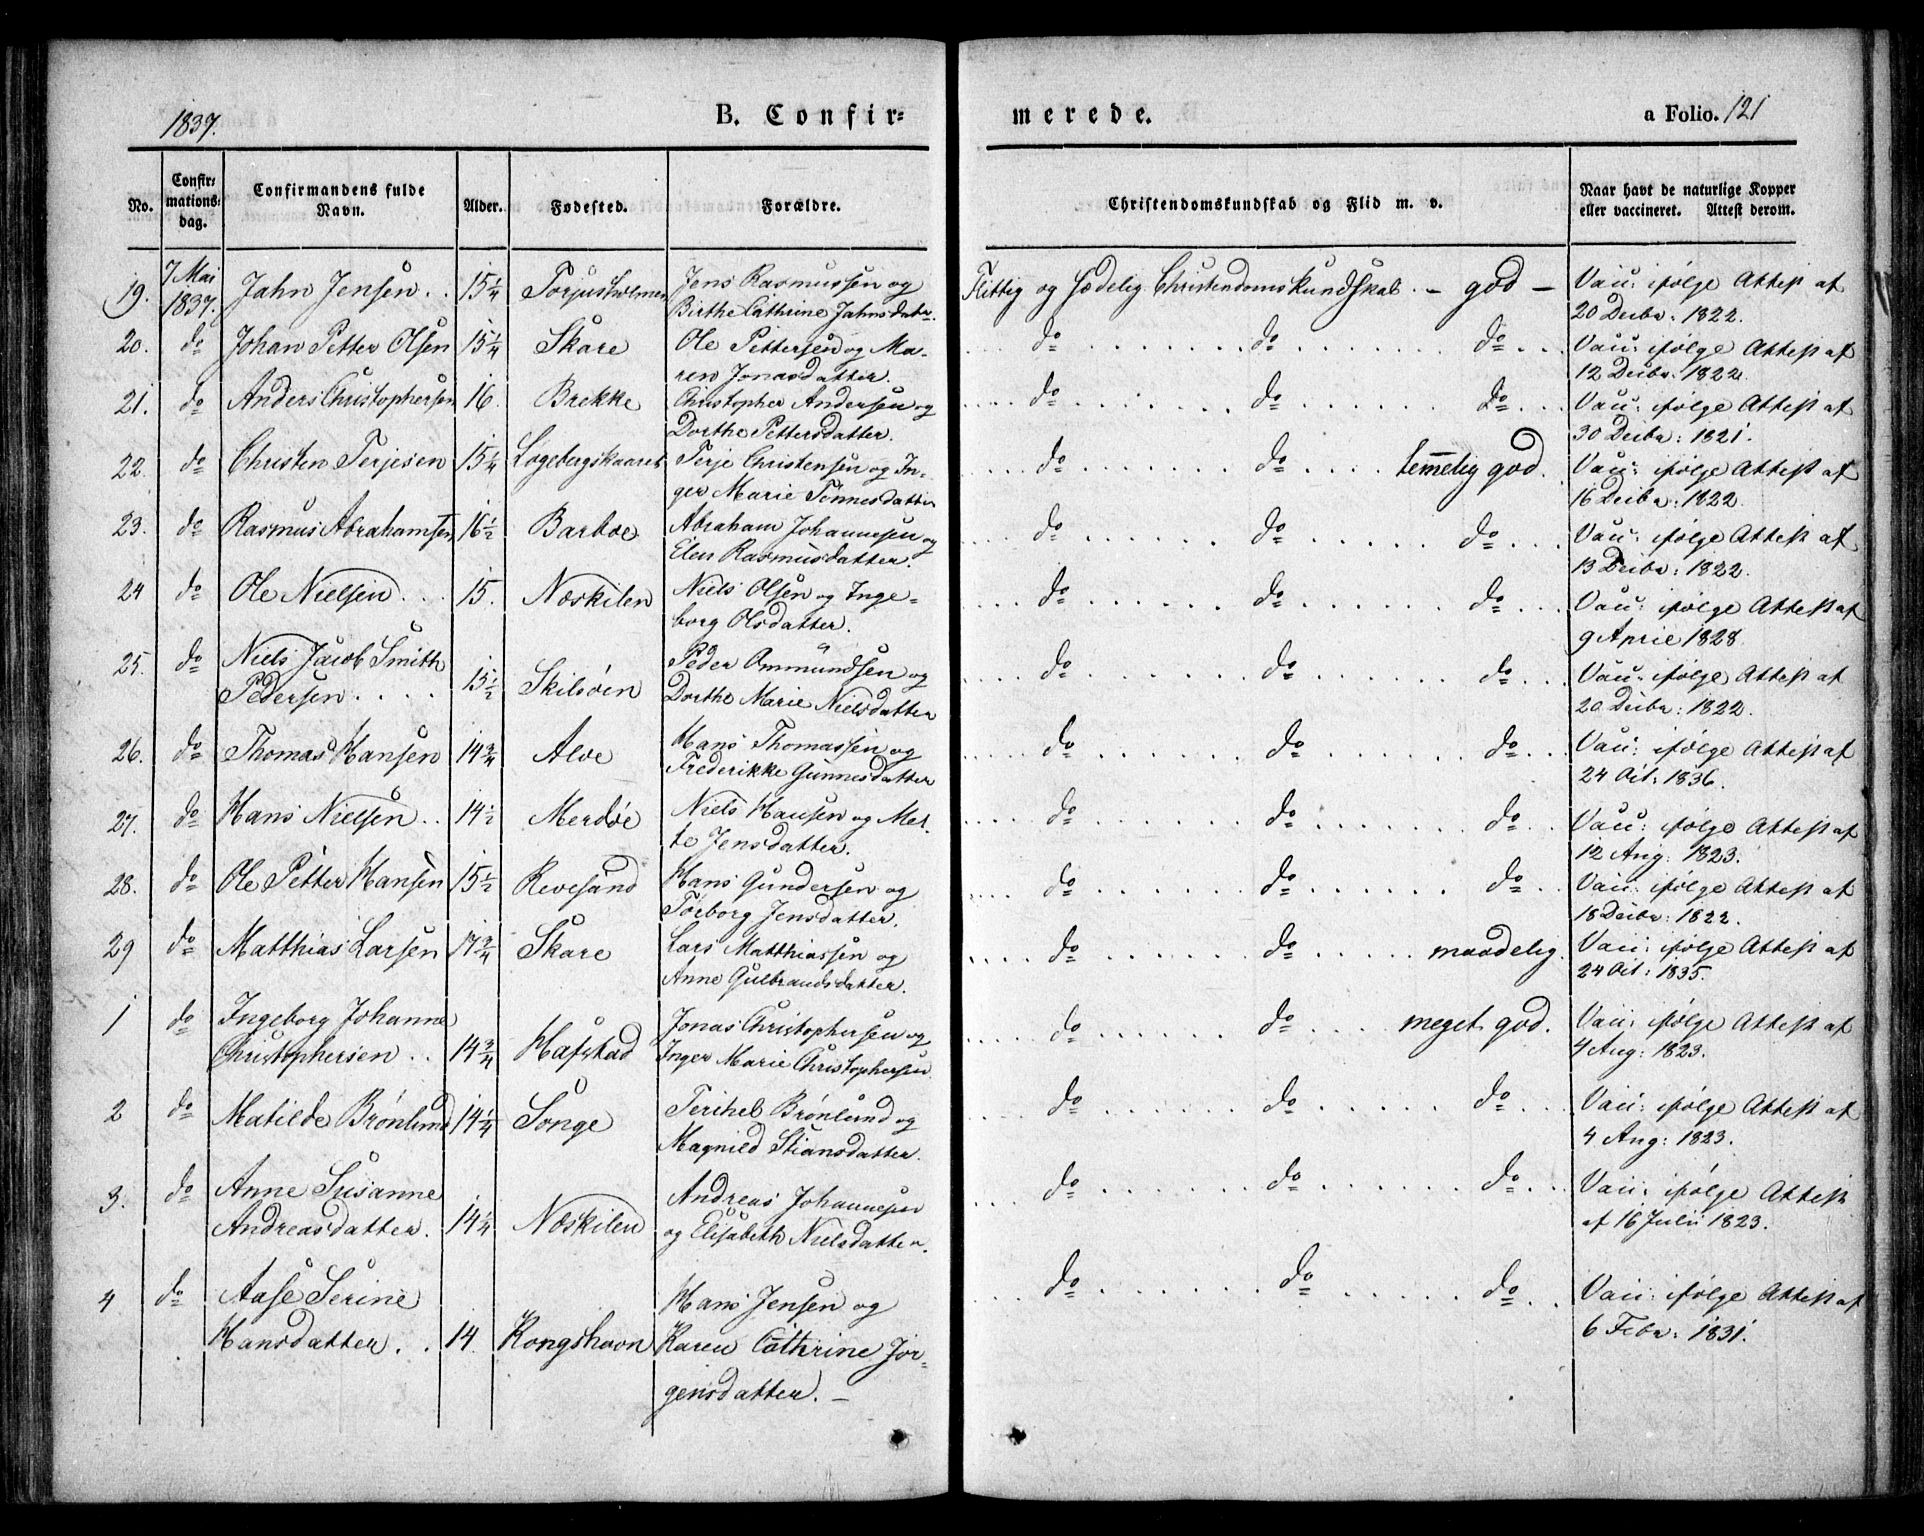 1837.
B. Confir=
merede.
a Folio. 121
No.
Confir=
mations=
dag.
Confirmandens fulde
Navn.
Alder.
Fødested.
Forældre.
Christendomskundskab og Flid m. v.
Naar havt de naturlige Kopper
eller vaccineret. Attest derom.
19. 7 Mai 1837. Jahn Jensen . . 15 1/4 Torjusholmen Jens Rasmussen og
Birthe Cathrine Jahnsdater.
Flittig og sædelig. Christendomskundskab. – god –
Vacc: ifølge Attest af
20 Decbr: 1822.
20. do Johan Petter Olsen 15 1/4 Skare Ole Pettersen og Ma-
ren Jonasdatter.
do do do
Vacc: ifølge Attest af
12 Decbr: 1822.
21. do Anders Christophersen 16. Brekke Christopher Andersen og
Dorthe Pettersdatter.
do do do
Vacc: ifølge Attest af
30 Decbr: 1821.
22. do Christen Terjesen 15 1/4 Terje Christensen og In-
ger Marie Tønnesdatter
do do temmelig god.
Vacc: ifølge Attest af
16 Decbr: 1822.
23. do Rasmus Abrahamsen 16 1/2 Barboe Abraham Johannesen og
Elen Rasmusdatter.
do do do
Vacc: ifølge Attest af
13 Decbr: 1822.
24 do Ole Nielsen . . . 15. Næskilen Niels Olsen og Inge-
borg Olsdatter.
do do do
Vacc: ifølge Attest af
9 April 1828.
25. do Niels Jacob Smith
Pedersen . . . . 15 1/2 Skilsøen Peder Ommundsen og
Dorthe Marie Nielsdatter
do do do
Vacc: ifølge Attest af
20 Decbr: 1822.
26. do Thomas Hansen 14 3/4 Alve Hans Thomassen og
Frederikke Gunnesdatter
do do do
Vacc: ifølge Attest af
24 Oct: 1836.
27. do Hans Nielsen . . 14 1/2 Merdøe Niels Hansen og Met-
te Jensdatter.
do do do
Vacc: ifølge Attest af
12 Aug: 1823.
28. do Ole Petter Hansen 15 1/2 Revesand Hans Gundersen og
Torborg Jensdatter.
do do do
Vacc: ifølge Attest af
18 Decbr: 1822.
29 do Matthias Larsen 17 3/4 Skare Lars Matthiassen og
Anne Gulbrandsdatter.
do do maadelig.
Vacc: ifølge Attest af
24 Oct: 1835.
1 do Ingeborg Johanne
Christophersen . . 14 3/4 Hafstad Jonas Christophersen og
Inger Marie Christophersen.
do do meget god.
Vacc: ifølge Attest af
4 Aug: 1823.
2 do Matilde Brønlund 14 1/4 Songe Brønlund og
Magnild Stiansdatter.
do do do
Vacc: ifølge Attest af
4 Aug: 1823.
3. do Anne Susanne
Andreasdatter. 14 1/4 Næskilen Andreas Johannesen
og Elisabeth Nielsdatter.
do do do
Vacc: ifølge Attest
af 16 Julii 1823.
4 do Aase Serine
Hansdatter . . 14 Kongshavn Hans Jensen og
Karen Cathrine Jør-
gensdatter. –
do do do
Vacc: ifølge Attest af
6 Febr: 1831.